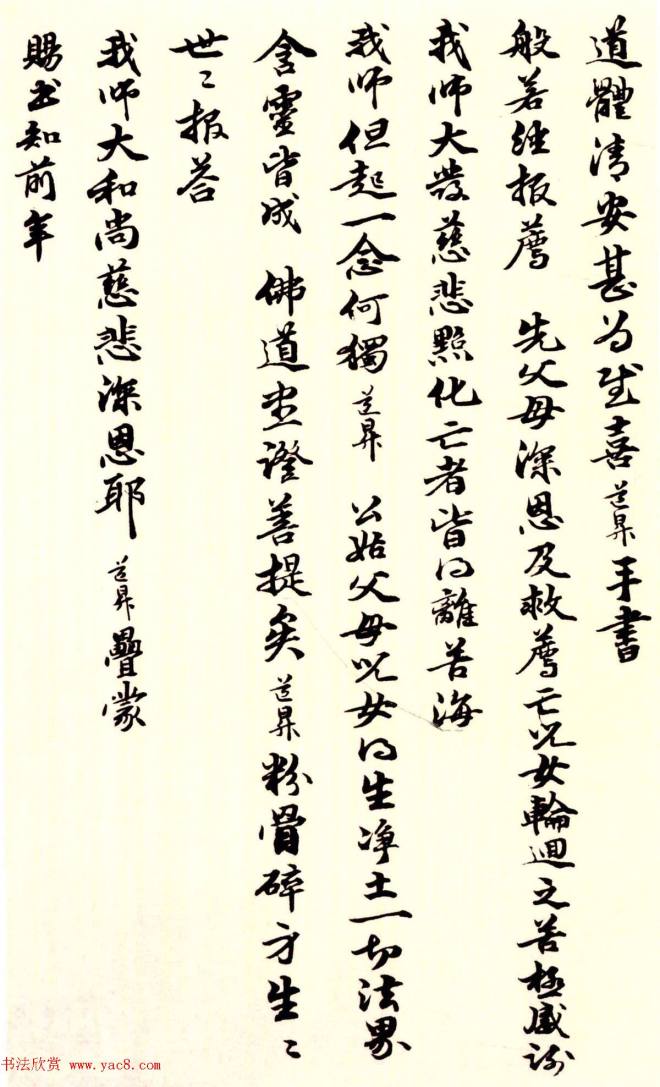 道體清安甚为慰喜道昇手書
般若經报薦 先父母深恩及救薦亡兒女輪迴之苦極感谢
我师大發慈悲點化亡者皆得離苦海
我师但起一念何獨道昇 公姑父母兒女得生净土一切法界
含靈皆成 佛道盡證菩提矣道昇粉骨碎身生〻
世〻报答
我师大和尚慈悲深恩耶道昇疊蒙
賜书知前年
书法欣赏 www.yac8.com